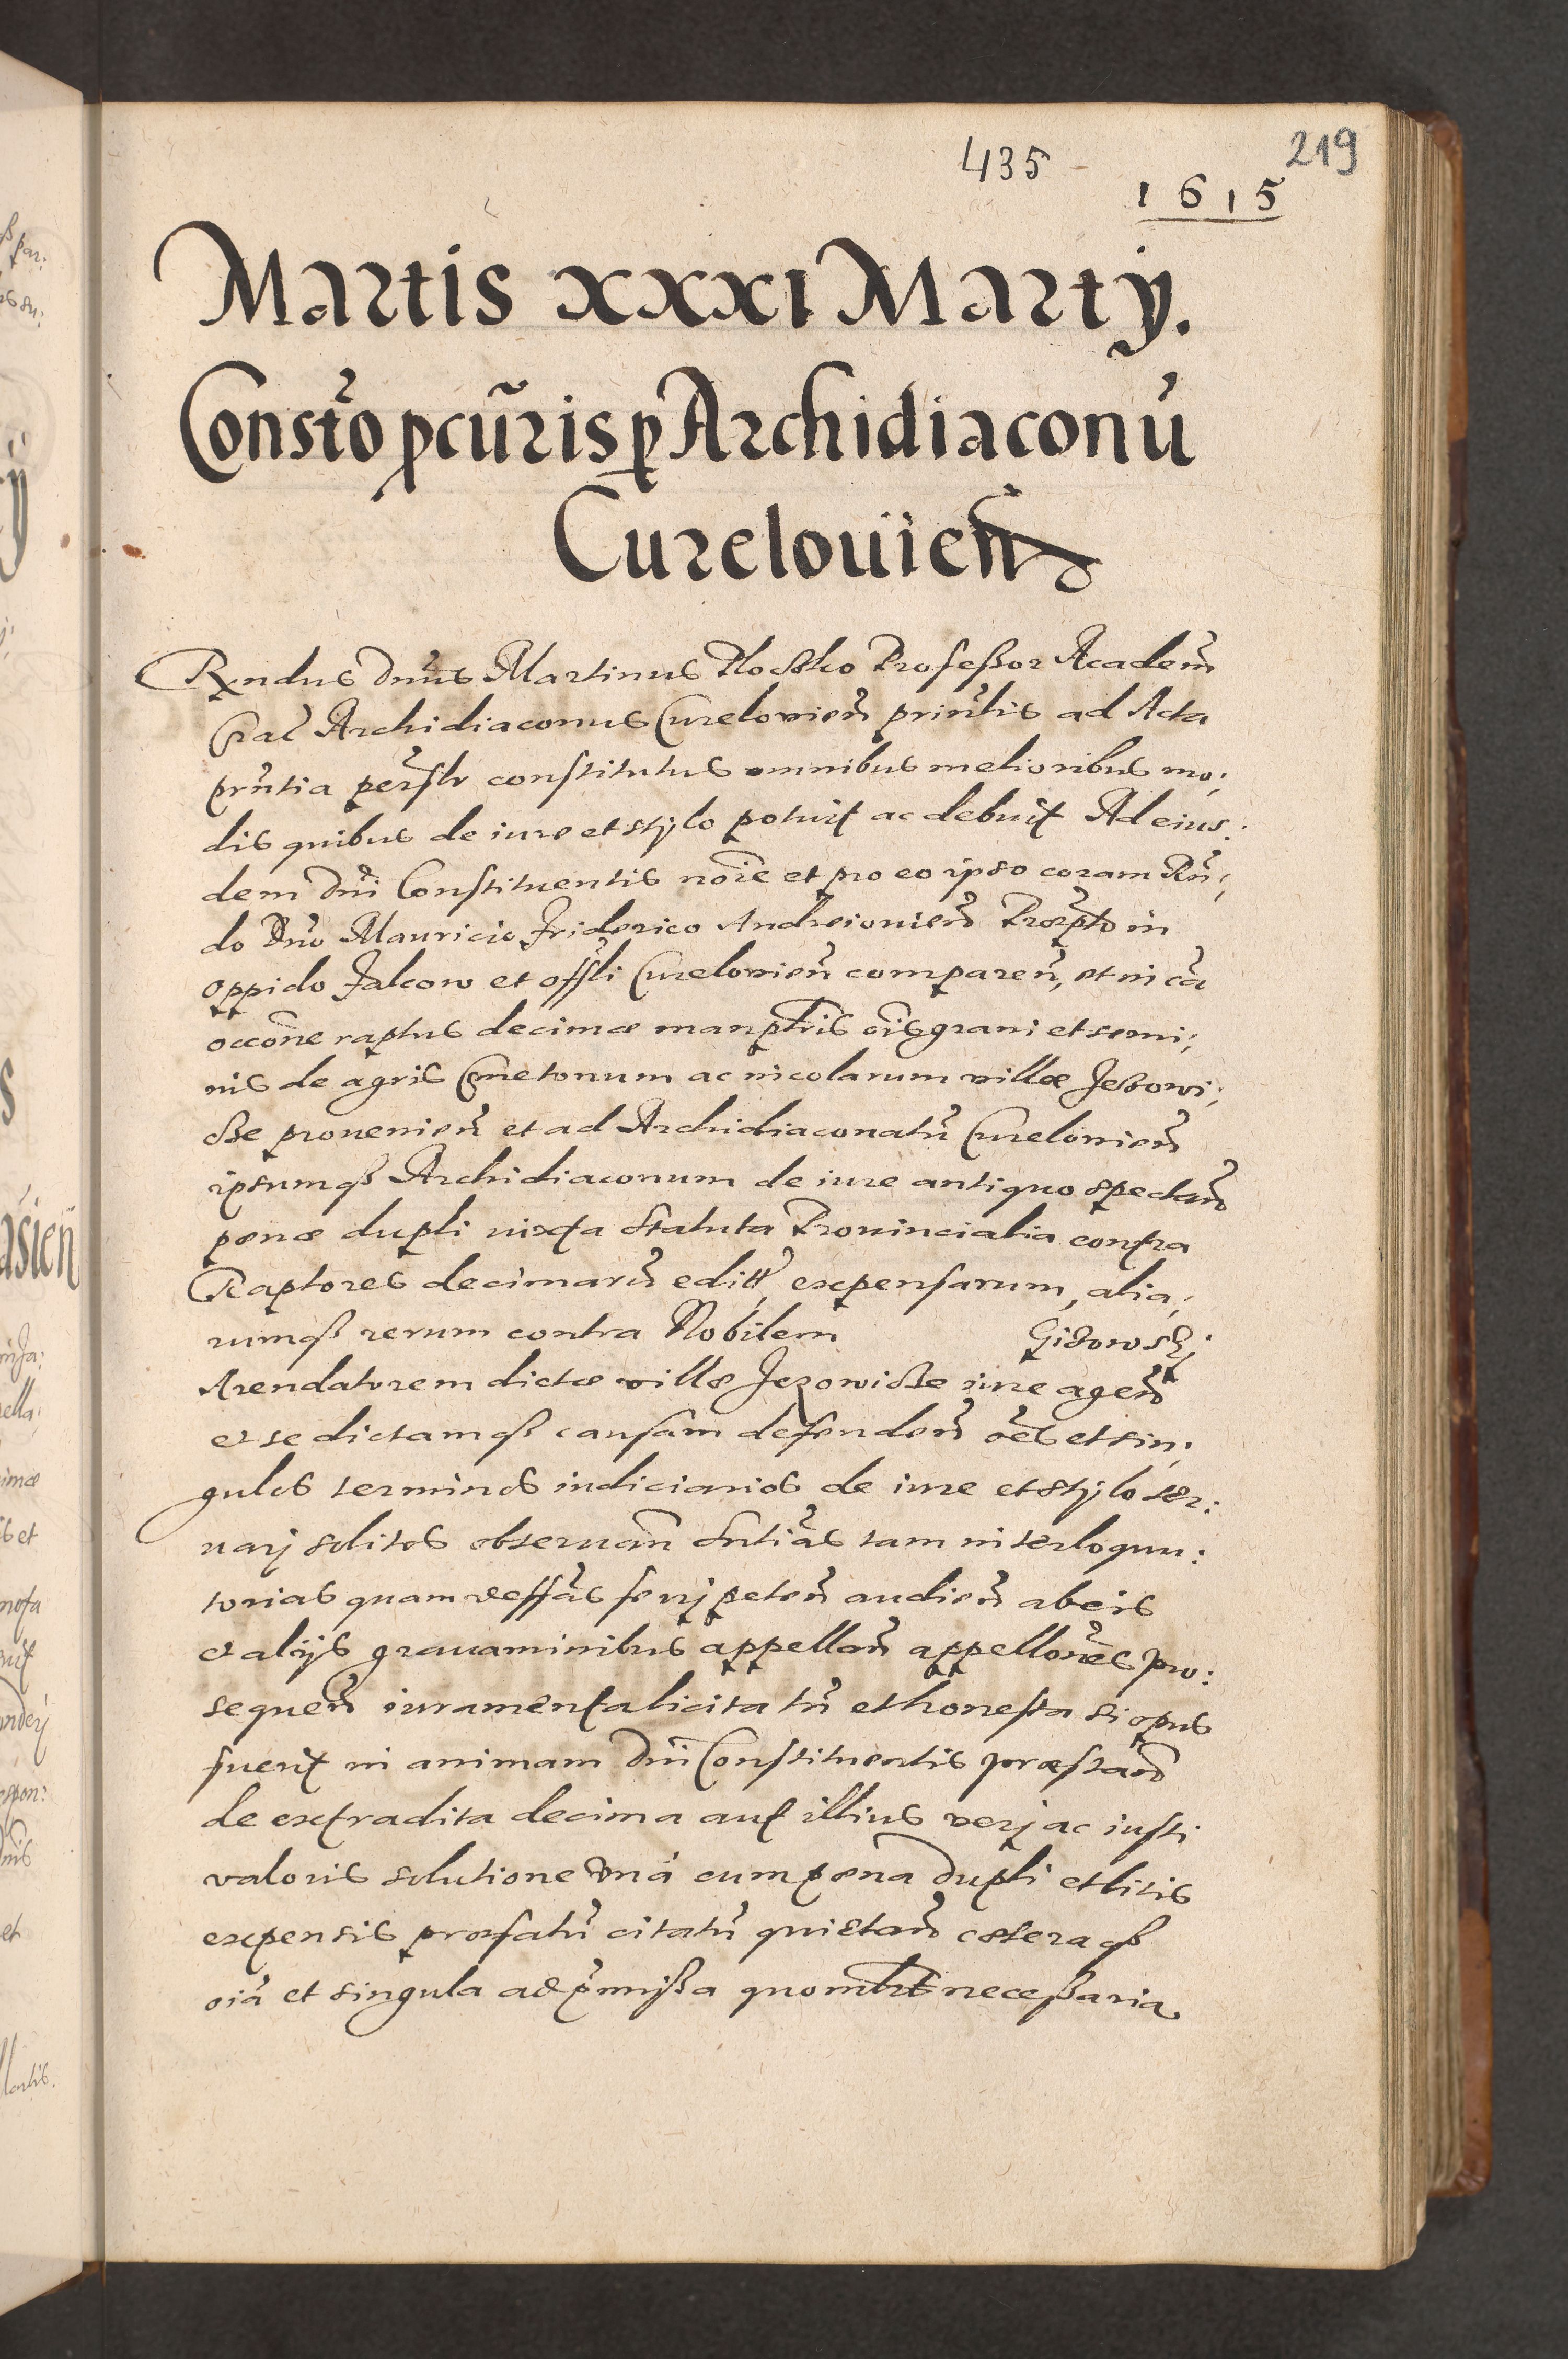 435
219
1615
Martis XXXI Martÿ.
Constõ pcũris p Archidiaconũ
Curelouien̄
Rndus Dnus Martinus Professor Academ̃
Crac̃ Archidiaconus Cureloviens̃ prinĩlis ad Acta
prñtia persl̃r constitutus omnibus melioribus mo:
dis quibus de iure et stylo potuit ac debuit Ad eius:
dem Dñi Constituentis noĩe et pro eo ipso coram Rñ:
do Dño Mauricio Friderico Andreiouien̄ Præpto in
oppido Falcow et offl̃i Cureloviens̃ comparen̄, et in cã
occõne raptus decimæ manipl̃ris oĩs grani et semi:
nis de agris Cmetonum ac incolarum villæ Jezowi:
cze provenien̄ et ad Archidiaconatũ Cureloviens̃
ipsumqß Archidiaconum de iure antiquo spectan̄
pœnæ dupli iuxta Statuta Provincialia contra
Raptores decimarũ editt, expensarum, alia:
rumqß rerum contra Nobilem Gidowskj
Arendatorem dictæ villæ Jezowicze iure agen̄
et se dictamqß causam defenden̄ oẽs et sin:
gulos terminos iudiciarios de iure et stylo ser:
uarj solitos obseruan̄ sntĩas tam interloquu:
torias quam deffãs ferrj peten̄ audien̄ ab eis
et alijs grauaminibus appellan̄ appellõnes pro:
sequen̄ iuramenta licita tñ et honesta si opus
fuerit in animam Dñi Constituentis præstan̄
de extradita decima aut illius verj ac iusti
valoris solutione unã cum pœna dupli et litis
expensis præfatũ citatũ quietan̄ cæteraqß
oĩa et singula ad p̃missa quomlbt necessaria